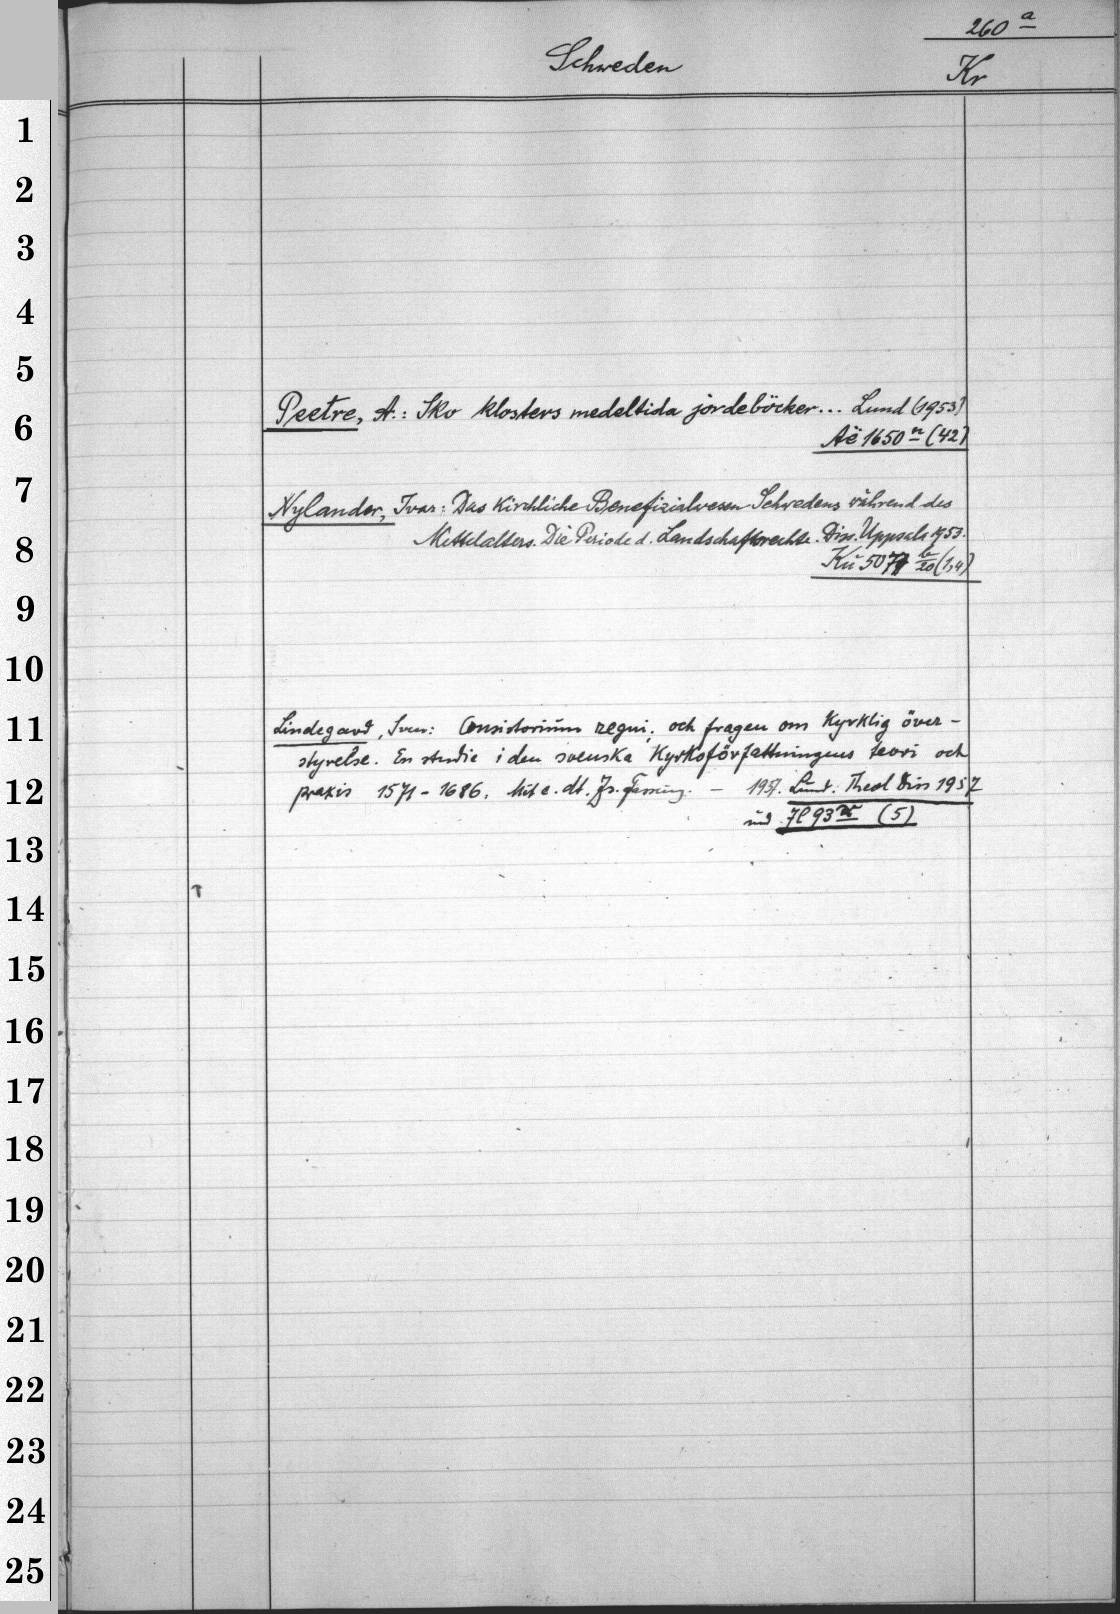 260 a
Schweden
Kr
1
2
3
4
5
Peetre, A.: Sko klosters medeltida jordeböcker... Lund (1953)
6
Aë 1650 n (42)
7
Nylander, Ivar: Das Kirchliche Benefizialwesen Schwedens während des
8
Mittelalters. Die Periode d. Landschaftsrechte. Diss. Uppsala 1953.
Kü 5077 b/20 (1,4)
9
10
11
Lindegård, Sven: Consistorium regni, och fragen om Kyrklig över-
styrelse. En studie i den svenska Kyrkoförfattningens teori och
12
praxis 1571-1686. Mit e. dt. Zs.fassung. - 1957. Lund: Theol Diss 1957
und (5)
13
14
15
16
17
18
19
20
21
22
23
24
25